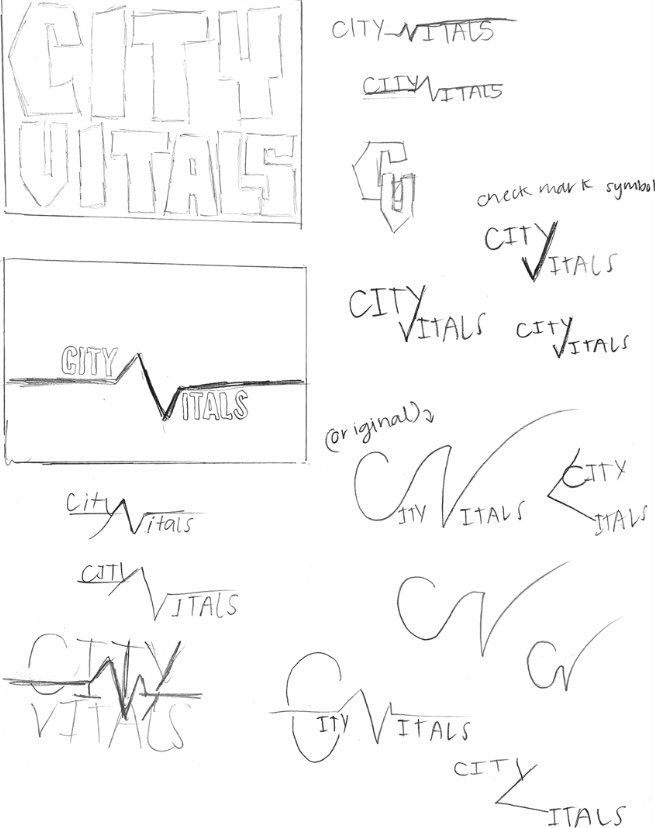 CITY
VITALS
CITY VITALS
CITY VITALS
CV
check mark symbol
CITY
VITALS
CITY
VITALS
CITY
VITALS
CITY
VITALS
(original)
CITY VITALS
CITY
VITALS
City Vitals
CITY
VITALS
CV
CV
CITY
VITALS
CITY VITALS
CITY
VITALS